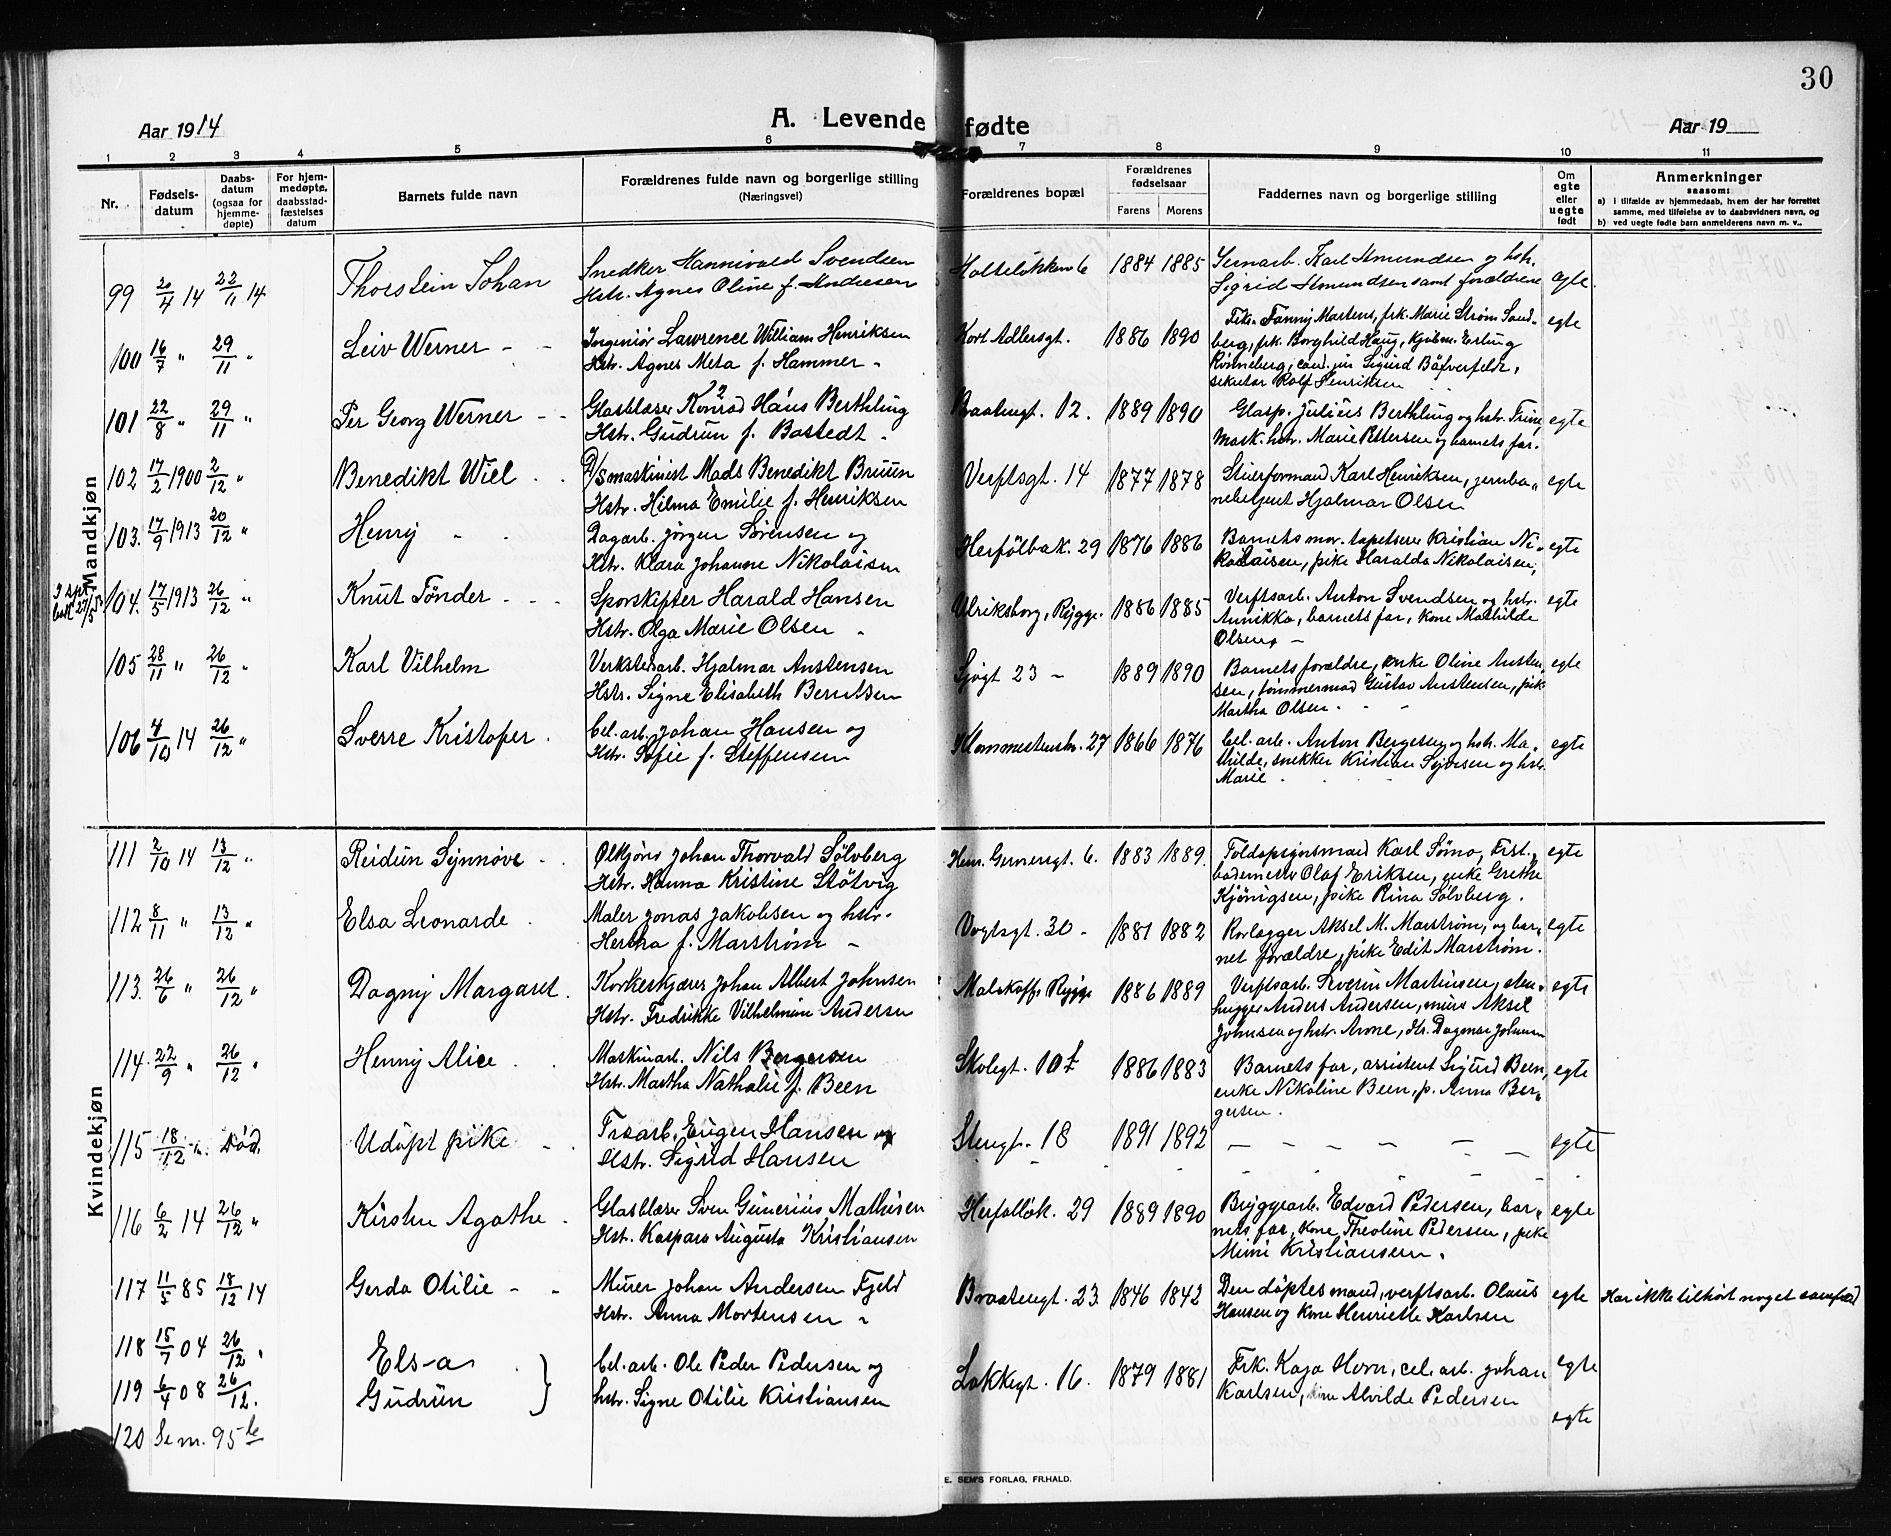 30
Aar 1914
A. Levende fødte
Aar 19
1 2 3 4 5 6 7 8 9 10 11
Nr.
Fødsels-
datum
Daabs-
datum
(ogsaa for
hjemme-
døpte)
For hjem-
medøpte,
daabsstad-
fæstelses
datum
Barnets fulde navn
Forældrenes fulde navn og borgerlige stilling
(Næringsvei)
Forældrenes bopæl
Forældrenes
fødselsaar
Farens Morens
Faddernes navn og borgerlige stilling
Om
egte
eller
uegte
født
Anmerkninger
saasom:
a) i tilfælde av hjemmedaab, hvem der har forrettet
samme, med tilføielse av to daabsvidners navn, og
b) ved uegte fødte barn anmelderens navn m. v.
Mandkjøn
99 20/4 14 22/11 14 Thorstein Johan
Snedker Hannivald Svendsen
Hstr. Agnes Oline f. Andresen
Holteløkken 6 1884 1885
Jernarb. Karl Amundsen og hstr.
Sigrid Amundsen samt forældrene
egte
100 16/7 " 29/11 " Leiv Werner
Ingeniør Lawrence William Henriksen
Hstr. Agnes Meta f. Hammer
Kort Adlersgt. 1886 1890
Frk. Fanny Martens, frk. Marie Strøm Sand-
berg, frk. Borghild Haug, kjøbm. Erling
Rønneberg, cand. jur Sigurd Bäfverfeldt,
sekretær Rolf Henriksen
egte
101 22/8 " 29/11 " Per Georg Werner
Glasblæser Konrad Hans Berthling
Hstr. Gudrun f. Bastedt
Braatengt. 12. 1889 1890
Glasp. Julius Berthling og hstr. Trine,
mask. hstr. Marie Pettersen og barnets far.
egte
102 17/2 1900 2/12 " Benedikt Wiel
D/S maskinist Mads Benedikt Bruun
Hstr. Hilma Emilie f. Henriksen
Verftsgt. 14 1877 1878
Stuerformand Karl Henriksen, jernba-
nebetjent Hjalmar Olsen
egte
103. 17/9 1913 20/12 " Henry
Dagarb. Jørgen Sørensen og
Hstr. Klara Johanne Nikolaisen
Herfølbak. 29 1876 1886
Barnets mor. tapetserer Kristian Ni-
kolaisen, pike Haralda Nikolaisen,
egte
104. 17/5 1913 26/12 " Knut Tønder
Sporskifter Harald Hansen
Hstr. Olga Marie Olsen
Ulriksborg, Rygge. 1886 1885
Verftsarb. Anton Svendsen og hstr.
Annikka, barnets far, kone Mathilde
Olsen
egte
105 28/11 " 26/12 " Karl Vilhelm
Verkstedarb. Hjalmar Anstensen
Hstr. Signe Elisabeth Berntsen
Sjøgt 23 1889 1890
Barnets forældre, enke Oline Ansten-
sen, tømmermand Gustav Anstensen, pike
Martha Olsen
egte
106 4/10 14 26/12 " Sverre Kristofer
Cel. arb. Johan Hansen og
Hstr. Sofie f. Steffensen
27 1866 1876
Cel. arb. Anton Bergesen og hstr. Ma-
thilde, snekker Kristian Syvesen og hstr.
Marie
egte
Kvindekjøn
111 2/10 14 13/12 " Reidun Synnøve
Ølkjører Johan Thorvald Sølvberg
Hstr. Hanna Kristine Støtvig
Henr. Gernersgt. 6. 1883 1889.
Toldopsynsmand Karl Sømo, Frst.
bademester Olaf Eriksen, enke Grethe
Kjønigsen, pike Rina Sølvberg.
egte
112 8/11 " 13/12 " Elsa Leonarde
Maler Jonas Jakobsen og hstr.
Hertha f. Marstrøm
Vogtsgt. 30 1881 1882
Rørlægger Aksel M. Marstrøm, og bar-
net forældre, pike Edit Marstrøm.
egte
113. 26/6 " 26/12 " Dagny Margaret.
Korkeskjærer Johan Albert Johnsen
Hstr. Fredrikke Vilhelmine Andersen
Rygge 1886 1889
Verftsarb. Severin Martinsen, sten-
hugger Anders Andersen, murer Aksel
Johnsen og hstr. Arone, Dagmar Johnsen
egte
114. 22/9 " 26/12 " Henny Alice
Maskinarb. Nils Bergersen
Hstr. Martha Nathalie f. Been
Skolegt. 10 1886 1883
Barnets far, assistent Sigurd Been,
enke Nikoline Been, p. Anna Ber-
gersen.
egte
115 18/12 Død. Udøpt pike
Træarb. Eugen Hansen og
Hstr. Sigrid Hansen
Stengt. 18 1891 1892
egte
116 6/2 14 26/12 " Kirsten Agathe
Glasblæser Sven Gunerius Mathisen
Hst. Kaspara Augusta Kristiansen
Herfølløk. 29 1889 1890
Bryggearb. Edvard Pedersen, bar-
nets far, kone Theoline Pedersen, pike
Mimi Kristiansen.
egte
117 11/5 85 18/12 14 Gerda Otilie
Murer Johan Andersen Fjeld
Hstr. Anna Mortensen
Braatengt. 23. 1846 1842
Den døptes mand, verftsarb. Olaus
Hansen og kone Henriette Karlsen
egte
Har ikke tilhørt noget samfund
118 15/7 04 26/12 " Elsa
119 6/4 08 26/12. Gudrun
Cel. arb. Ole Peder Pedersen og
hstr. Signe Otilie Kristiansen
Løkkegt. 16. 1879 1881
Frk. Kaja Horn, cel. arb. Johan
Karlsen, kone Alvilde Pedersen
egte
egte
120 Se nr. 95 b
E. SEM'S FORLAG, FR.HALD.